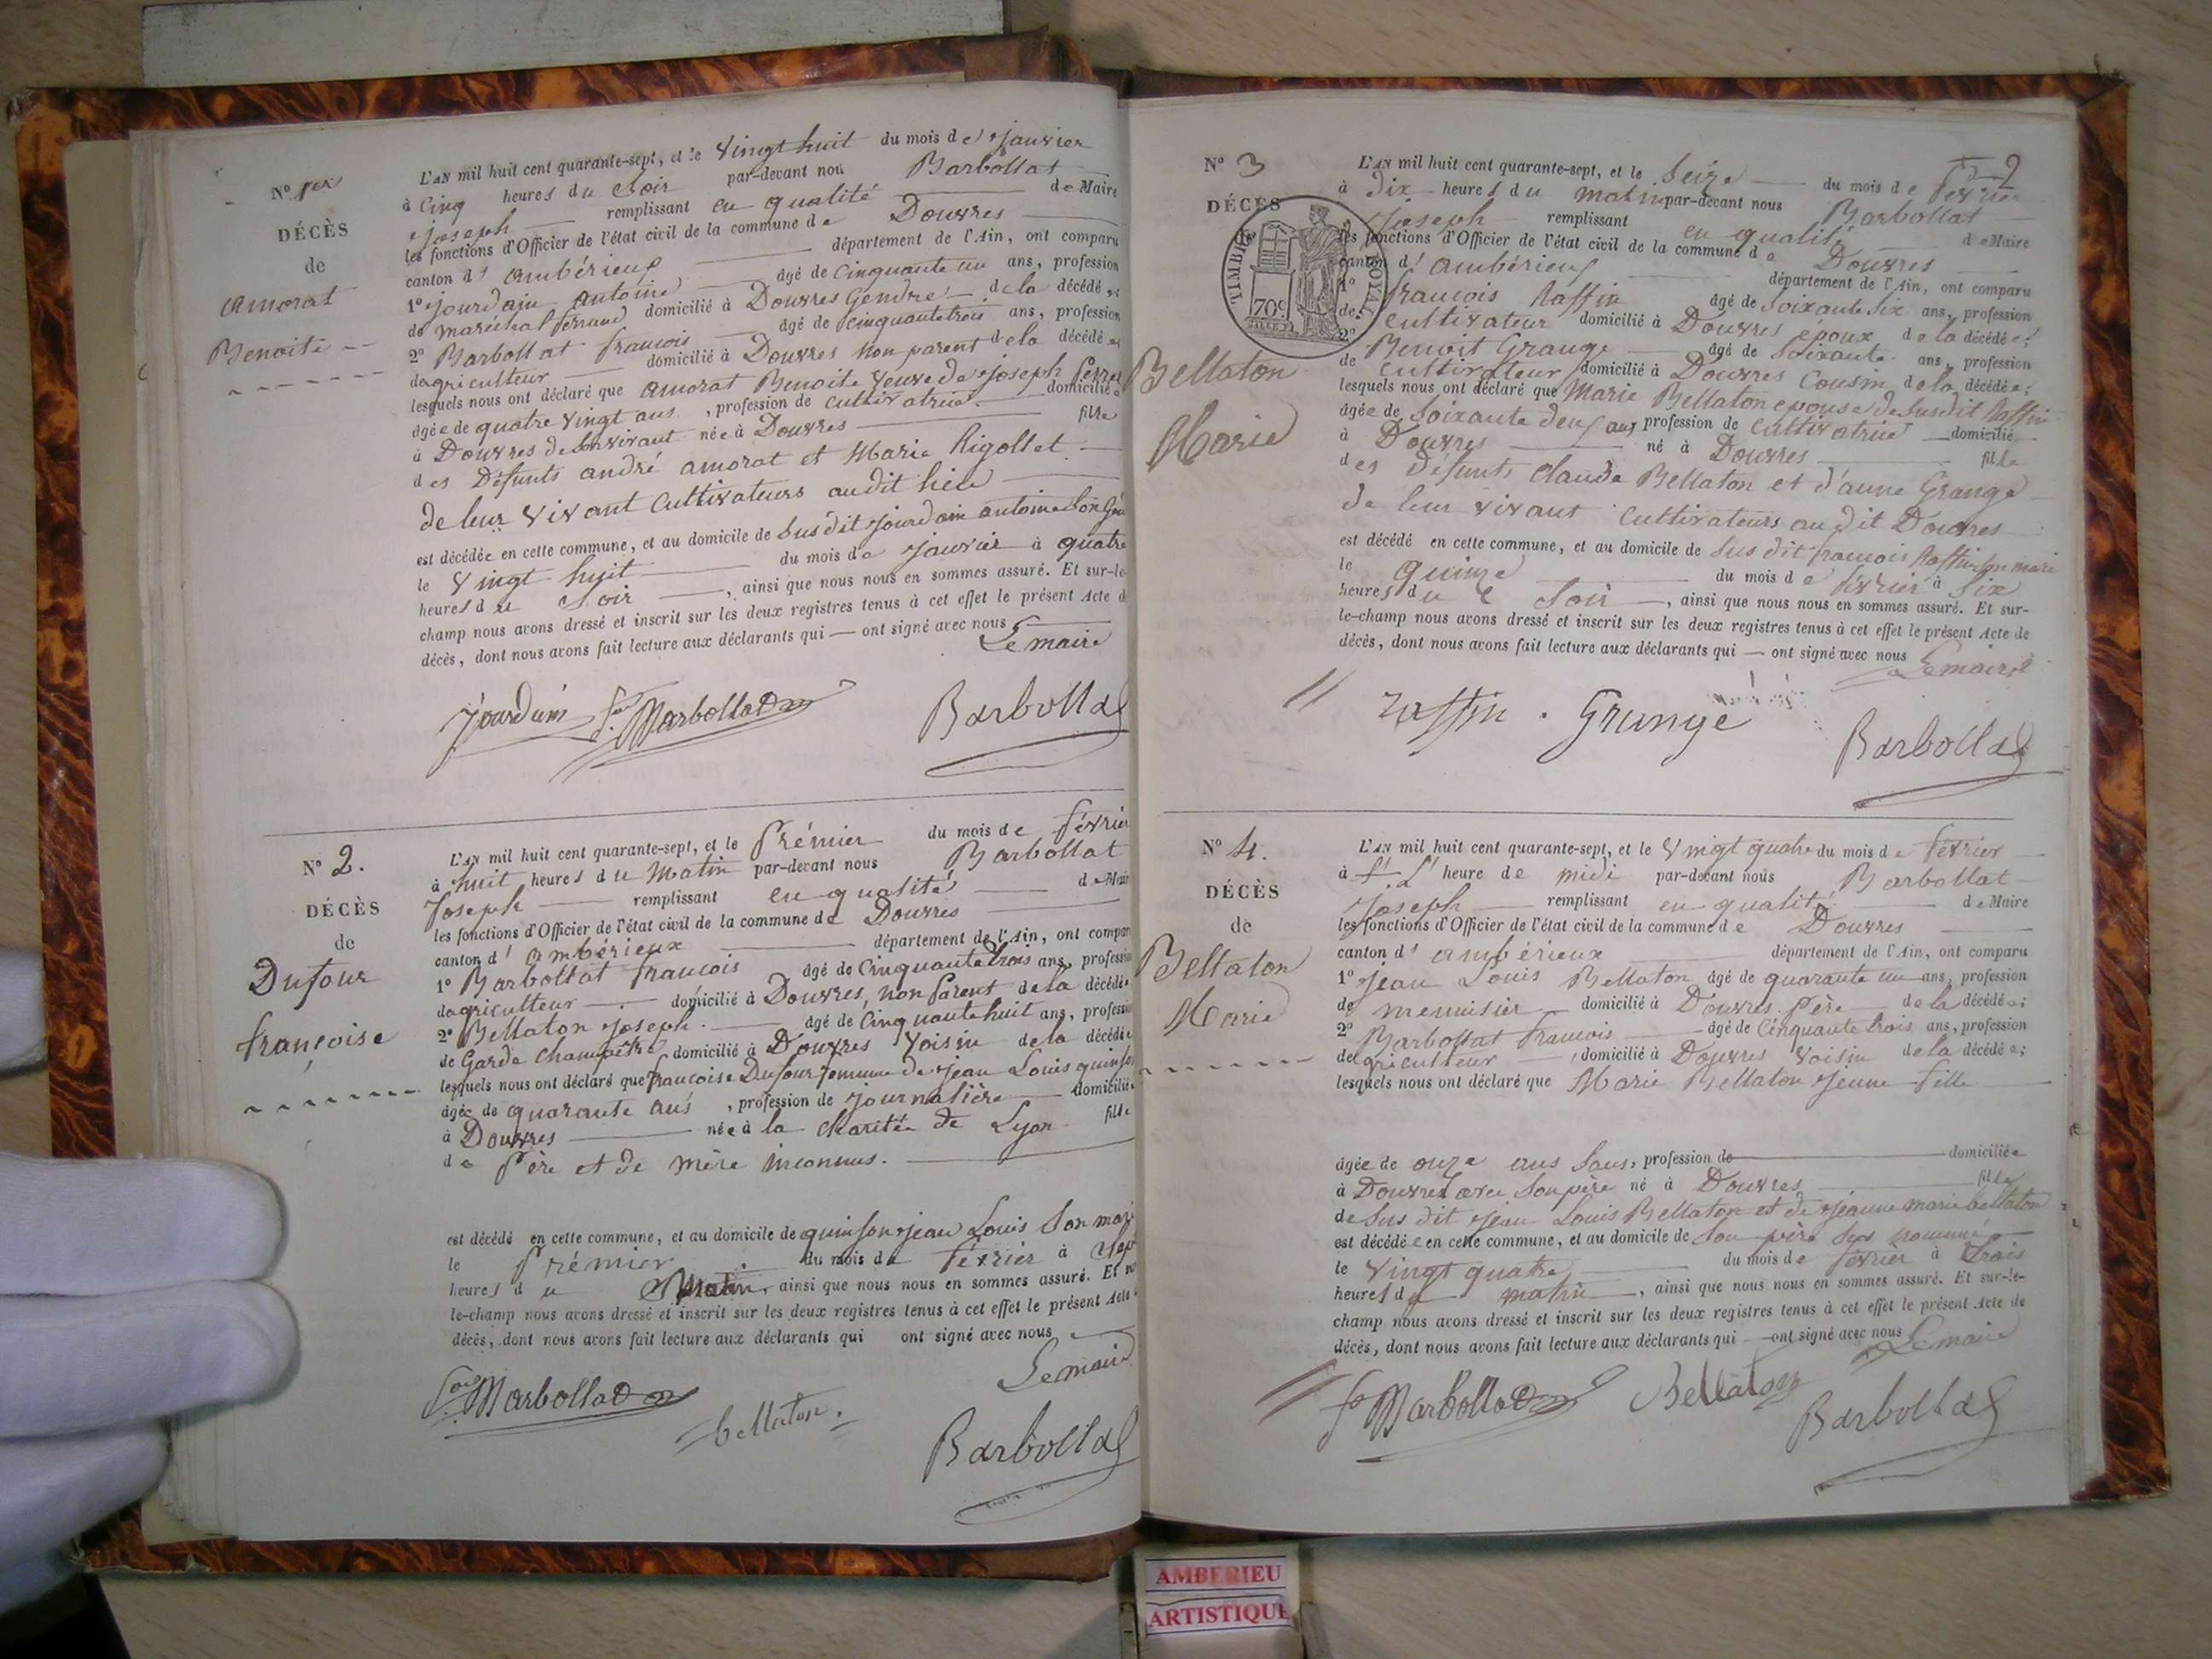 N° 1er
DÉCÈS
de
amorat
Benoite
L'AN mil huit cent quarante-sept, et le Vingt huit du mois de janvier
à Cinq heures du Soir par-devant nou Barbollat
joseph remplissant en qualité de Maire
les fonctions d'Officier de l'état civil de la commune de Douvres
canton d' ambérieux département de l'Ain, ont comparu
1° jourdain antoine âgé de Cinquante un ans, profession
de maréchal ferrand domicilié à Douvres Gendre de la décédée;
2° Barbollat francois âgé de cinquante trois ans, profession
dagriculteur domicilié à Douvres non parent de la décédée;
lesquels nous ont déclaré que amorat Benoite veuve de joseph ferret
âgée de quatre vingt ans, profession de cultivatrice domiciliée
à Douvres de Son vivant née à Douvres fille
des Défunts andré amorat et Marie Rigollet.
de leur vivant Cultivateurs audit lieu
est décédée en cette commune, et au domicile de Susdit jourdain antoine Son
le Vingt huit du mois de janvier à quatre
heures du Soir, ainsi que nous nous en sommes assuré. Et sur-le-
champ nous avons dressé et inscrit sur les deux registres tenus à cet effet le présent Acte d
décès, dont nous avons fait lecture aux déclarants qui — ont signé avec nous
Le maire
jourdain f. Barbollat Barbollat
N° 2.
DÉCÈS
de
Dufour
françoise
L'AN mil huit cent quarante-sept, et le Prémier du mois de février
à huit heures du Matin par-devant nous Barbollat
Joseph remplissant en qualité de Mair
les fonctions d'Officier de l'état civil de la commune de Douvres
canton d' ambérieux département de l'Ain, ont compar
1° Barbollat francois âgé de Cinquante trois ans, professi
dagriculteur domicilié à Douvres, non parent de la décédée
2° Bellaton joseph. âgé de Cinquante huit ans, profess
de Garde Champêtre domicilié à Douvres Voisin de la décédée
lesquels nous ont déclaré que francoise Dufour femme de jean Louis quinson
âgée de quarante ans, profession de journalière domiciliée
à Douvres née à la charitée de Lyon fille
de Père et de mère inconnus.
est décédé en cette commune, et au domicile de quinson jean Louis Son mari
le Prémier du mois de février à Sept
heures du Matin, ainsi que nous nous en sommes assuré. Et
le-champ nous avons dressé et inscrit sur les deux registres tenus à cet effet le présent Acte
décès, dont nous avons fait lecture aux déclarants qui ont signé avec nous
Le maire
Barbollat bellaton. Barbollat
N° 3
DÉCÈS
TIMBRE ROYAL
70c
Bellaton
Marie
L'AN mil huit cent quarante-sept, et le Seize du mois de février
à dix heures du matin par-devant nous Barbollat
Joseph remplissant en qualité de Maire
les fonctions d'Officier de l'état civil de la commune de Douvres
canton d' ambérieux département de l'Ain, ont comparu
1° francois Raffin âgé de Soixante Six ans, profession
de Cultivateur domicilié à Douvres époux de la décédée;
2° Benoit Grange âgé de Soixante ans, profession
de Cultivateur domicilié à Douvres Cousin de la décédée;
lesquels nous ont déclaré que Marie Bellaton epouse de Susdit Raffin
âgée de Soixante deux ans profession de Cultivatrice domicilié
à Douvres né à Douvres fille
des Défunts Claude Bellaton et d'anne Grange
de leur vivant Cultivateurs audit Douvres
est décédé en cette commune, et au domicile de Sus dit francois Raffin Son mari
le quinze du mois de février à Six
heures du Soir, ainsi que nous nous en sommes assuré. Et sur-
le-champ nous avons dressé et inscrit sur les deux registres tenus à cet effet le présent Acte de
décès, dont nous avons fait lecture aux déclarants qui — ont signé avec nous Le maire
raffin . Grange Barbollat
N° 4.
DÉCÈS
de
Bellaton
Marie
L'AN mil huit cent quarante-sept, et le Vingt quatre du mois de février
à L' heure de midi par-devant nous Barbollat
Joseph remplissant en qualité de Maire
les fonctions d'Officier de l'état civil de la commune de Douvres
canton d' ambérieux département de l'Ain, ont comparu
1° jean Louis Bellaton âgé de quarante un ans, profession
de menuisier domicilié à Douvres. Père de la décédée;
2° Barbollat francois âgé de Cinquante trois ans, profession
dagriculteur, domicilié à Douvres Voisin de la décédée;
lesquels nous ont déclaré que Marie Bellaton jeune fille
âgée de onze ans Sans, profession de domiciliée
à Douvres avec Son père né à Douvres fille
de Sus dit jean Louis Bellaton et de jeanne marie bellaton
est décédée en cette commune, et au domicile de Son père Sus nommé
le Vingt quatre du mois de février à trois
heures du matin, ainsi que nous nous en sommes assuré. Et sur-le-
champ nous avons dressé et inscrit sur les deux registres tenus à cet effet le présent Acte de
décès, dont nous avons fait lecture aux déclarants qui — ont signé avec nous Le maire
Barbollat Bellaton Barbollat
AMBERIEU
ARTISTIQUE